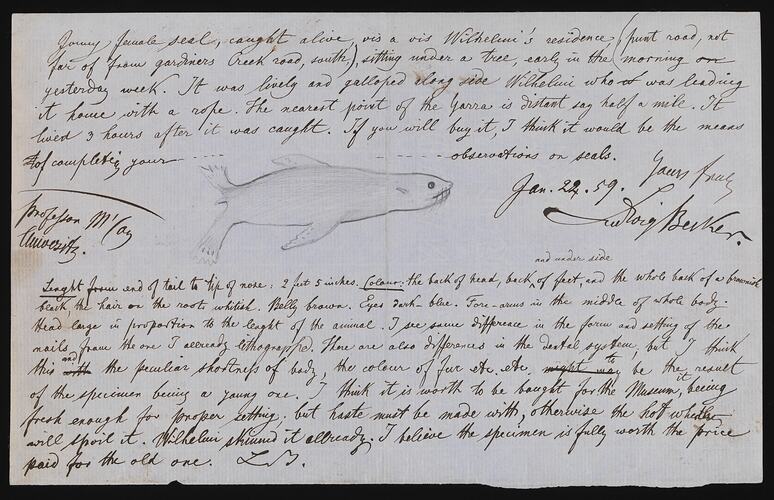 Young female seal, caught alive, vis a vis Wilhelmi's residence (punt road, not
far of from gardiners Creek road, south), sitting under a tree, early in the morning on
yesterday week. It was lively and galloped along side Wilhelmi who was leading
it home with a rope. The nearest point of the Yarra is distant say half a mile. It
lived 3 hours after it was caught. If you will buy it, I think it would be the means
of completing your - - - - - - - - observations on seals.
Yours truly
Jan. 22. 59.
Ludwig Becker.
Professor M'Coy
University.
and under side
Lenght from end of tail to tip of nose: 2 feet 5 inches. Colour: the back of head, back, of feet, and the whole back of a brownish
black, the hair on the roots whitish. Belly brown. Eyes dark-blue. Fore-arms in the middle of whole body.
Head large in proportion to the lenght of the animal. I see some difference in the form and setting of the
nails from the one I allready lithographed. There are also differences in the dental system, but I think
this and the peculiar shortness of body, the colour of fur etc. etc. might to be the result
of the specimen being a young one. I think it is worth to be bought for the Museum, it being
fresh enough for proper setting. but haste must be made with, otherwise the hot weather
will spoil it. Wilhelmi skinned it allready. I believe the specimen is fully worth the price
paid for the old one. L B.